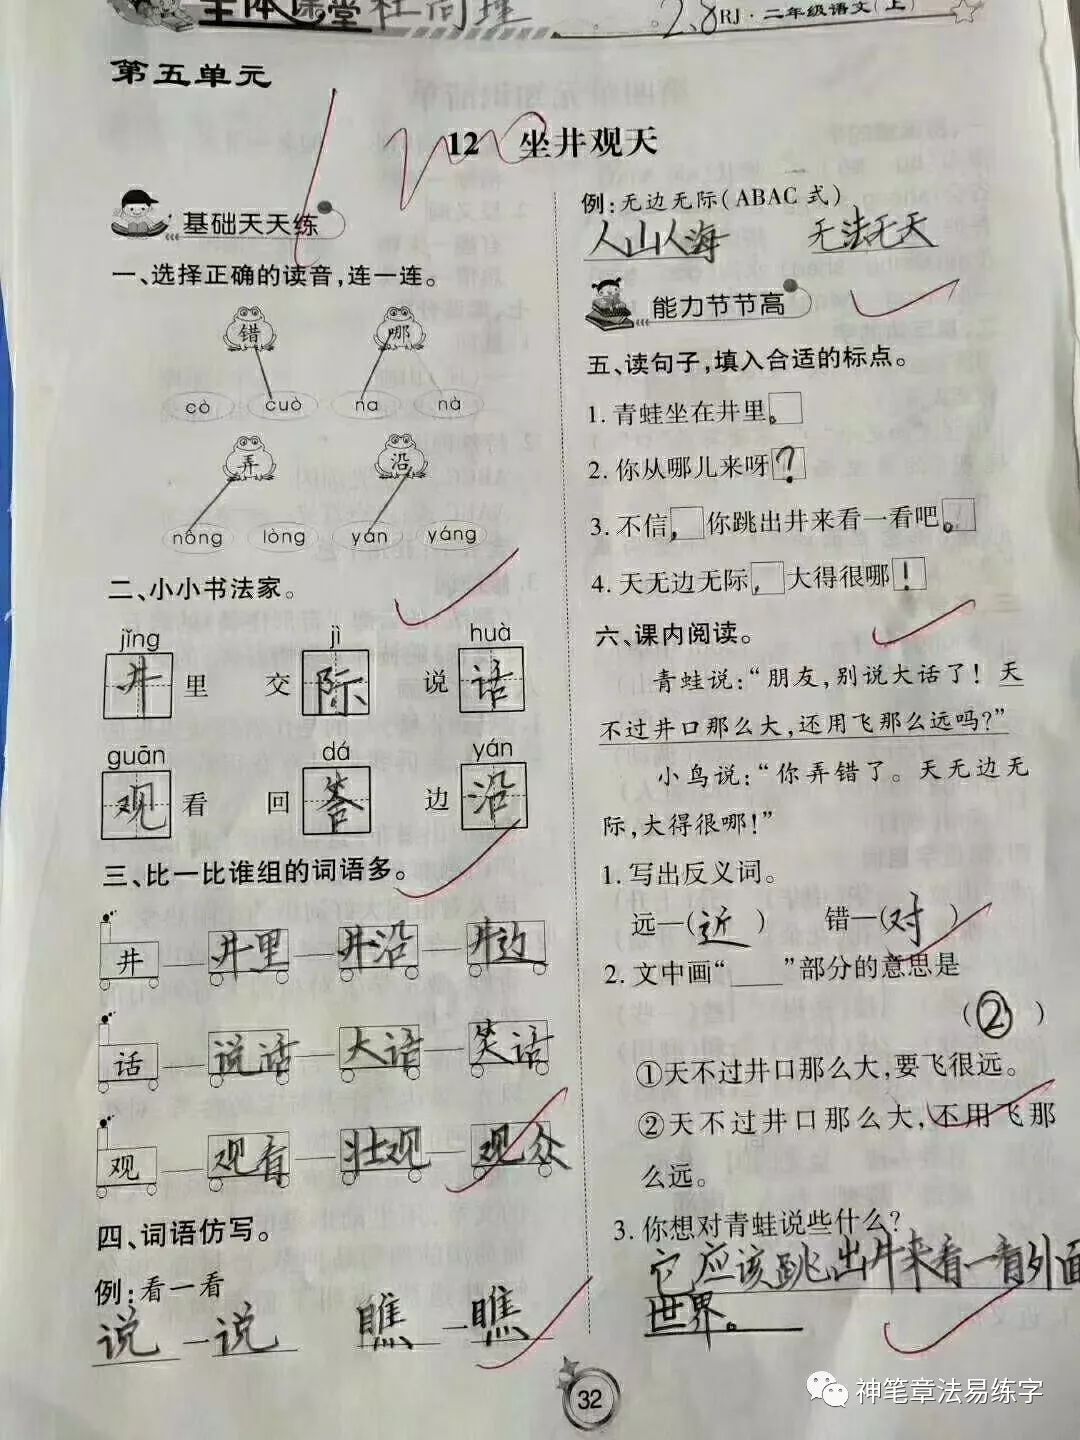 全体课堂
RJ·二年级语文(上)
第五单元
12 坐井观天
基础天天练
一、选择正确的读音,连一连。
错 哪
cò cuò na nà
弄 沿
nóng lòng yán yáng
二、小小书法家。
jǐng jì huà
井里 交际 说话
guān dá yán
观看 回答 边沿
三、比一比谁组的词语多。
井 井里 井沿 井边
话 说话 大话 笑话
观 观看 壮观 观众
四、词语仿写。
例:看一看
说一说 瞧一瞧
例:无边无际(ABAC 式)
人山人海 无法无天
能力节节高
五、读句子,填入合适的标点。
1. 青蛙坐在井里。
2. 你从哪儿来呀?
3. 不信,你跳出井来看一看吧。
4. 天无边无际,大得很哪!
六、课内阅读。
青蛙说:“朋友,别说大话了!天
不过井口那么大,还用飞那么远吗?”
小鸟说:“你弄错了。天无边无
际,大得很哪!”
1. 写出反义词。
远—(近) 错—(对)
2. 文中画“____”部分的意思是
(②)
①天不过井口那么大,要飞很远。
②天不过井口那么大,不用飞那
么远。
3. 你想对青蛙说些什么?
它应该跳出井来看一看外面
世界。
32
神笔章法易练字